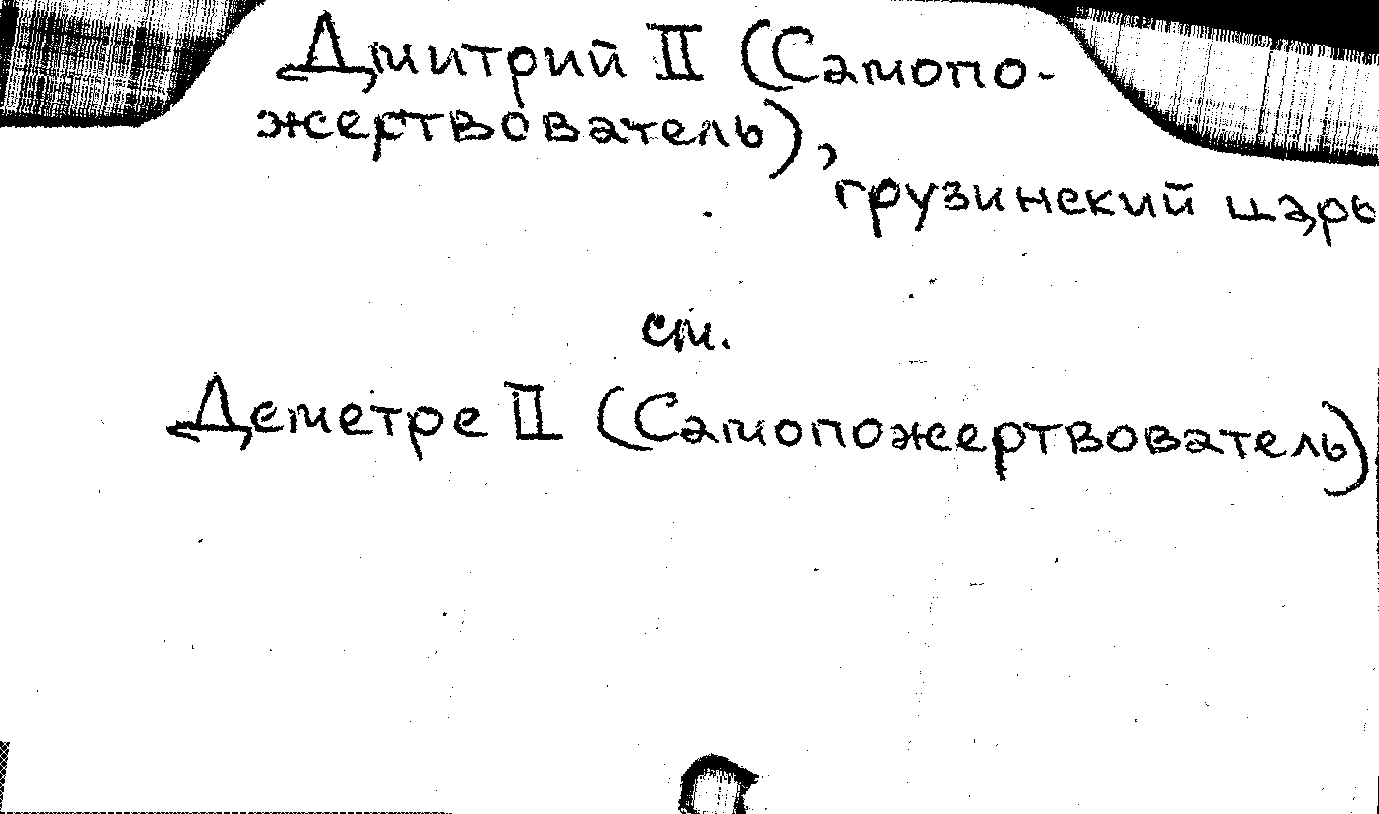 Дмитрий II (Самопо-
жертвователь),
грузинский царь
см.
Деметре II (Самопожертвователь)